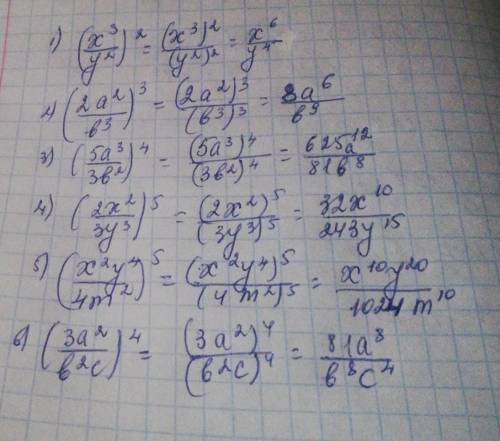 1) (x³/y²)² = (x³)²/(y²)² = x⁶/y⁴
2) (2a²/в³)³ = (2a²)³/(в³)³ = 8a⁶/в⁹
3) (5a³/3в²)⁴ = (5a³)⁴/(3в²)⁴ = 625a¹²/81в⁸
4) (2x²/3y³)⁵ = (2x²)⁵/(3y³)⁵ = 32x¹⁰/243y¹⁵
5) (x²y⁴/4m²)⁵ = (x²y⁴)⁵/(4m²)⁵ = x¹⁰y²⁰/1024m¹⁰
6) (3a²/в²c)⁴ = (3a²)⁴/(в²c)⁴ = 81a⁸/в⁸c⁴